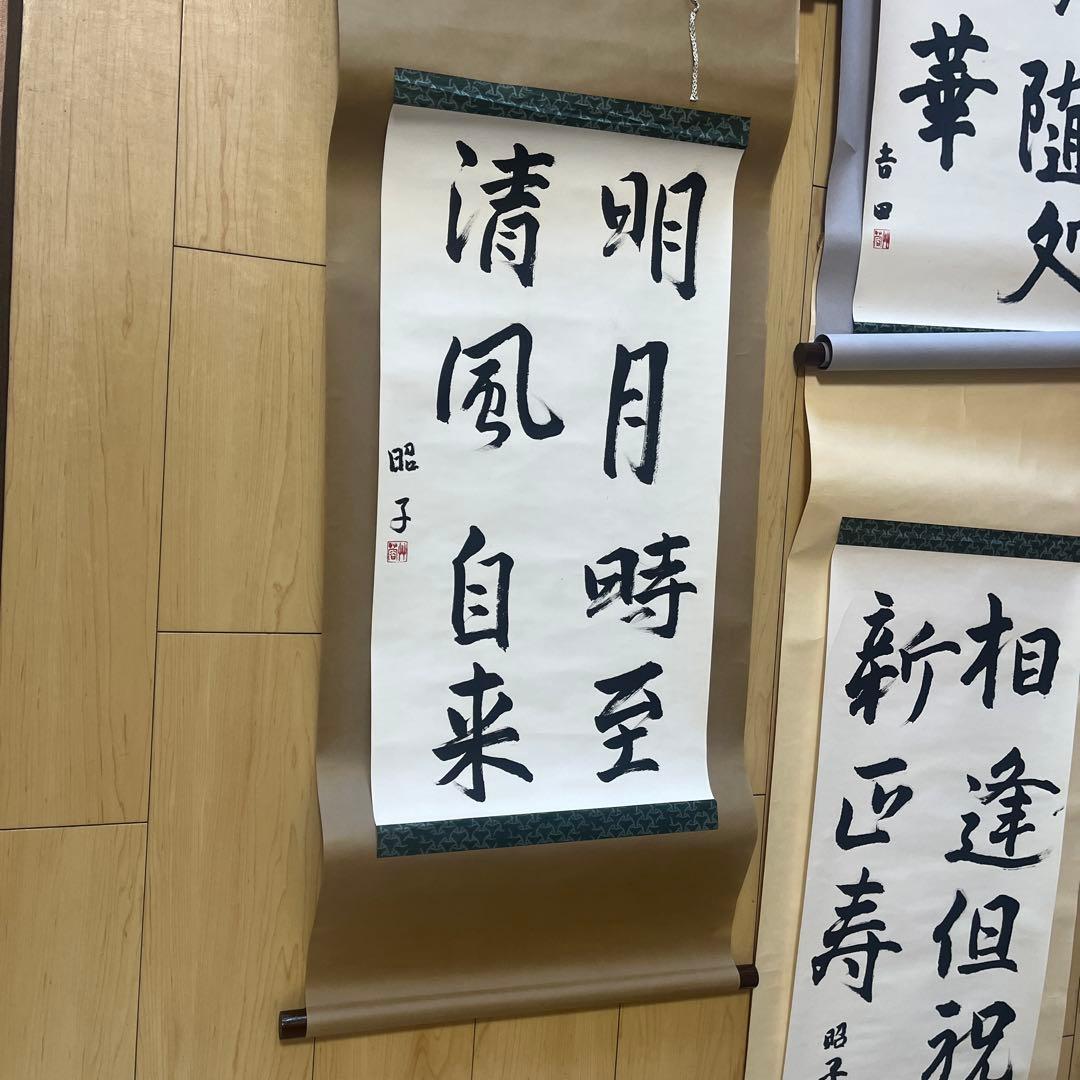 明月時至
清風自来
昭子
随处
華
吉田
相逢但祝
新正寿
昭子